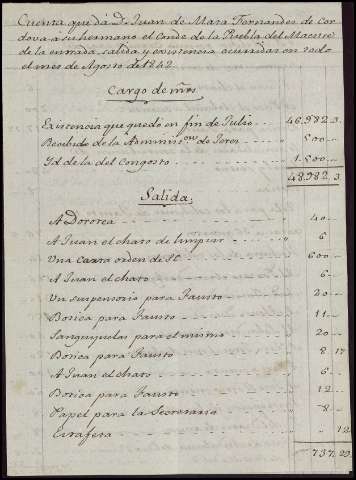 Cuenta que dá Dn. Juan de Mata Fernandes de Cor
dova a su hermano el Conde de la Puebla del Maestre
de la entrada, salida y existencia ocurridas en todo
el mes de Agosto de 1842
Cargo de mrs
Existencia que quedó en fin de Julio 46.982 3
Recibido de la Adminison de Jeres 500
Yd de la del Congosto 1.500
48.982 3
Salida
A Dorotea 40
A Juan el chato de limpiar 6
Una Carta orden de 600
A Juan el chato 6
Un suspensorio para Fausto 20
Botica para Fausto 11
Sanguijuelas para el mismo 20
Botica para Fausto 8 17
A Juan el chato 6
Botica para Fausto 12
Papel para la Secretaria 8
Estafeta 12
737 29